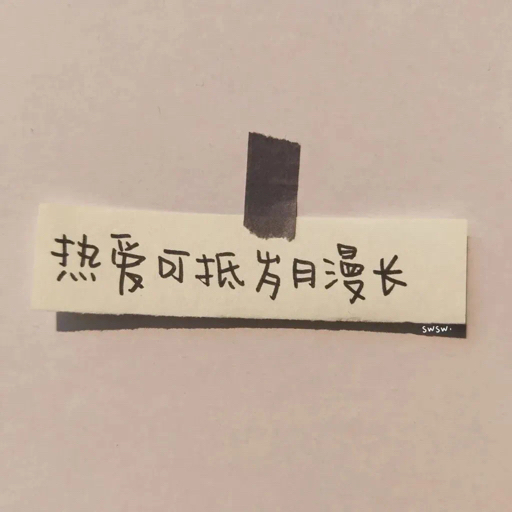 热爱可抵岁月漫长
swsw.